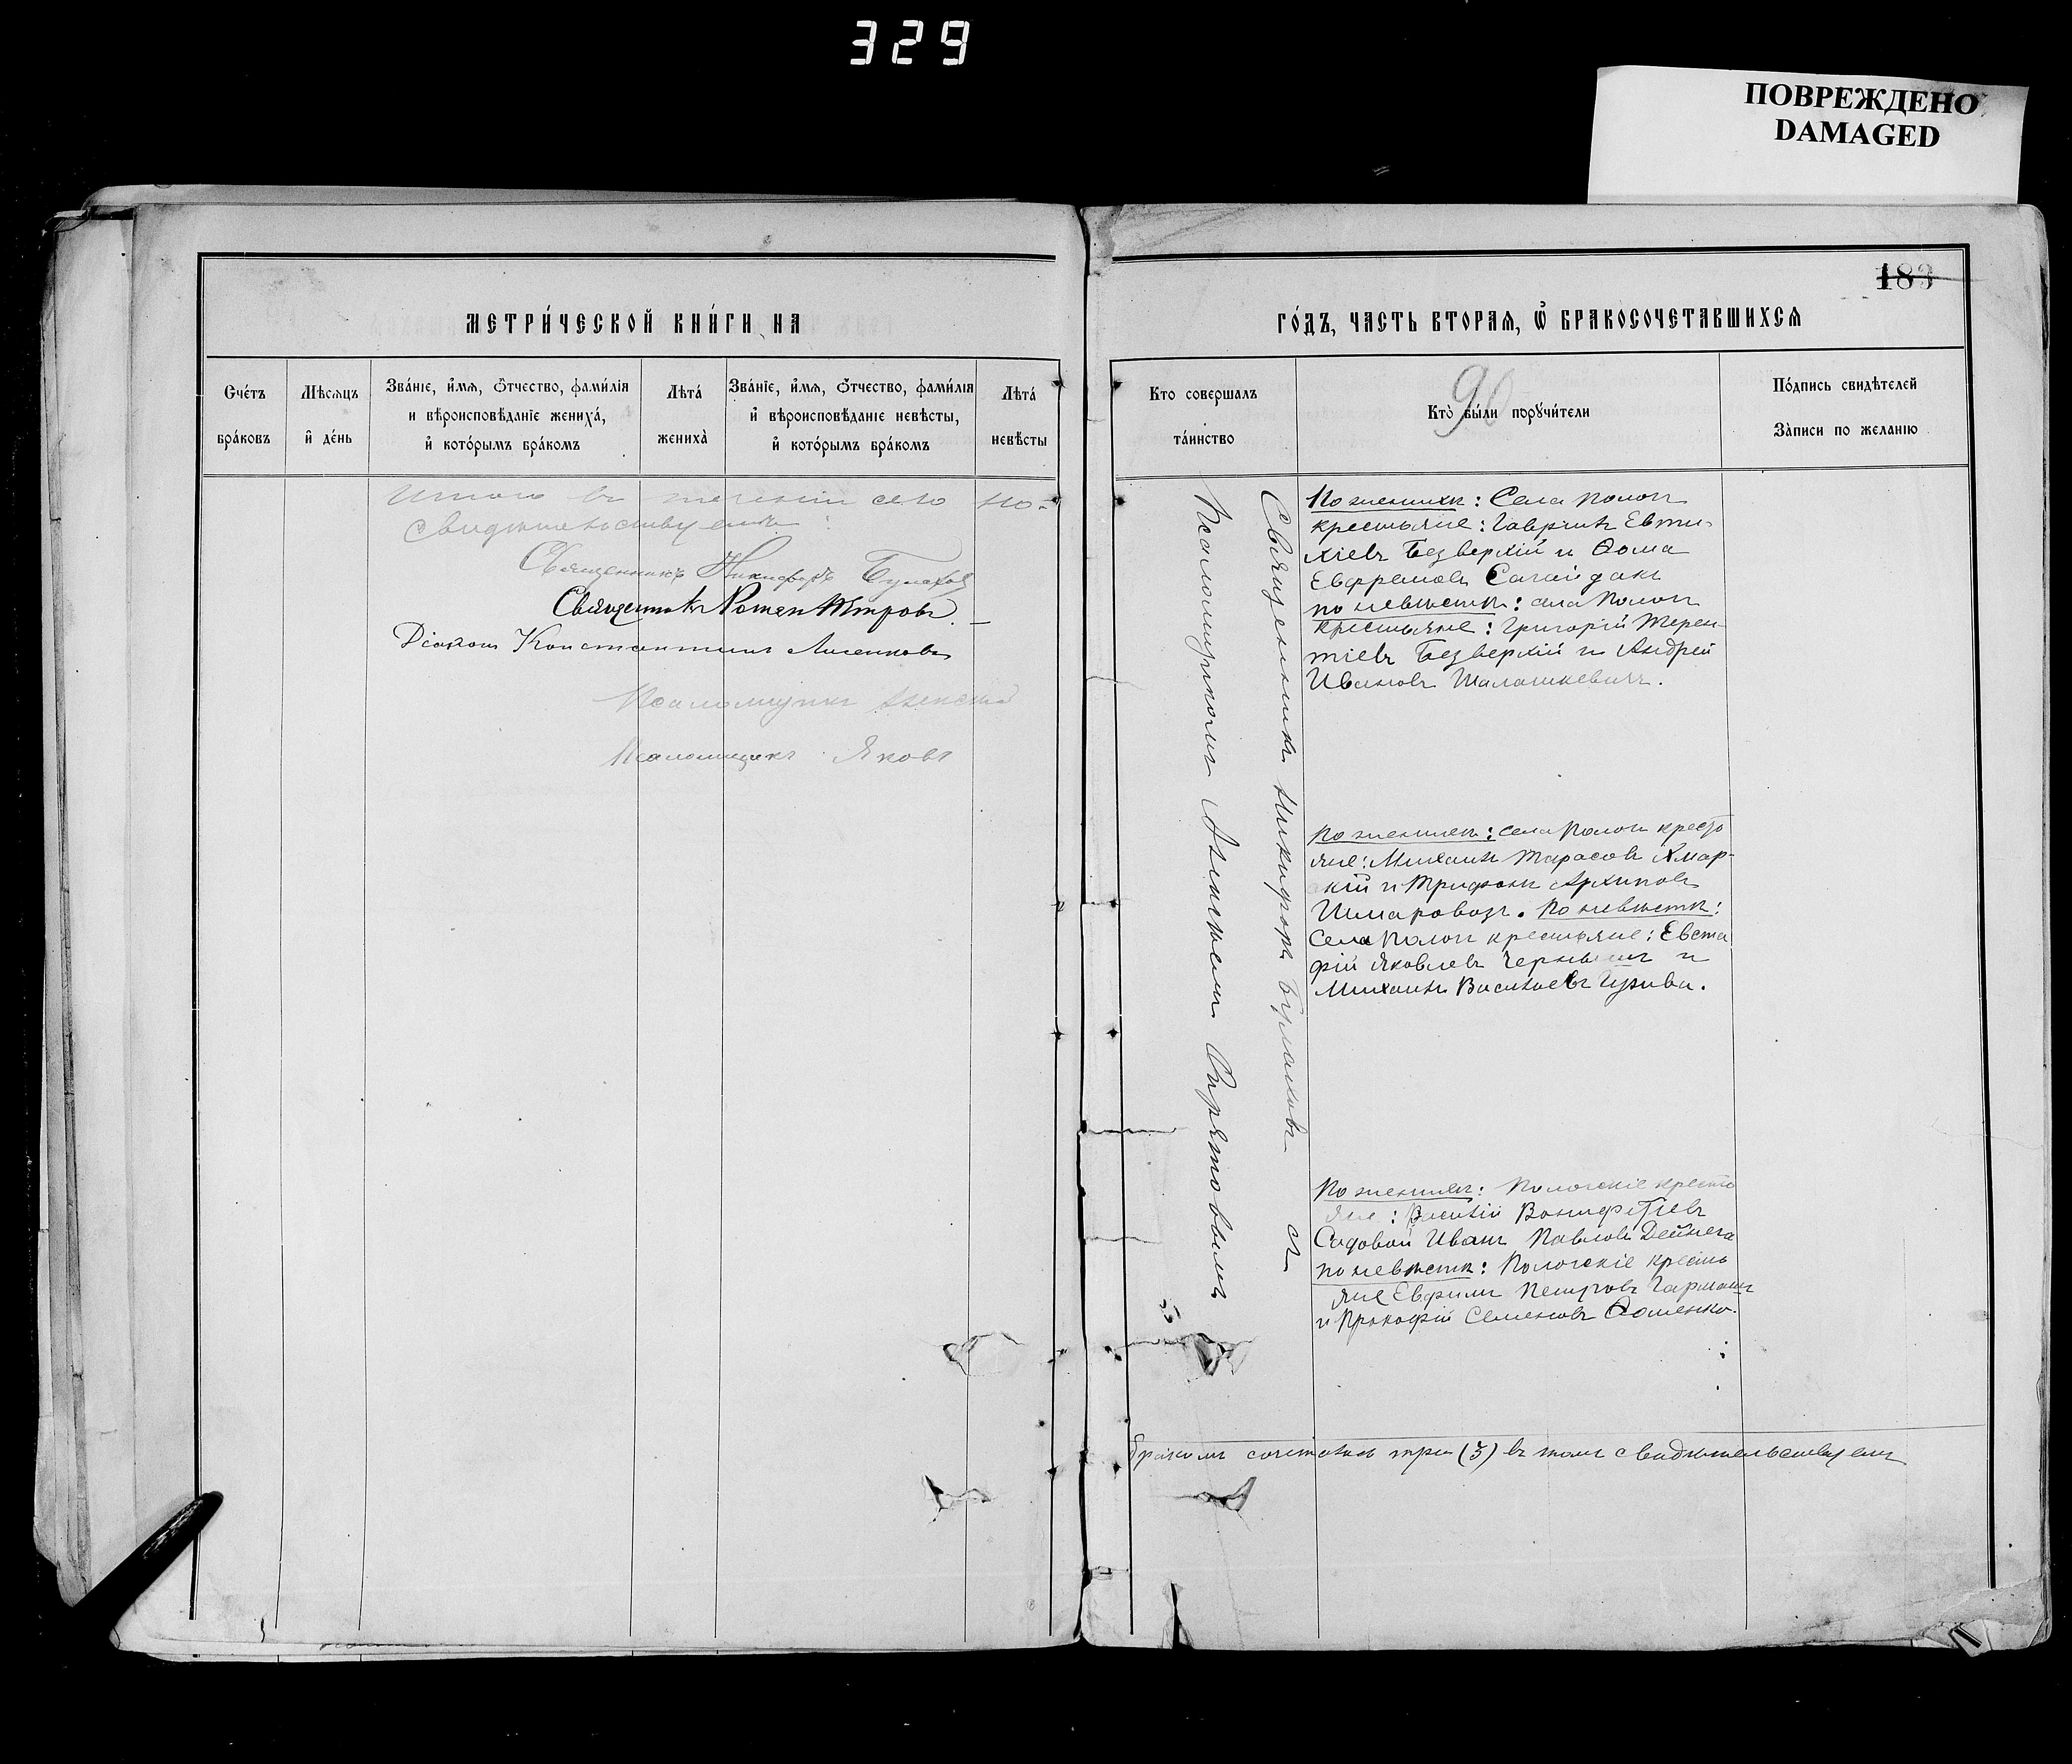 329
ПОВРЕЖДЕНО
DAMAGED
МЕТРИ́ЧЕСКОЙ КНИ́ГИ НА
Сче́тъ бра́ковъ
Мѣсѧцъ и҆ де́нь
Зва́нїе, и҆́мѧ, ѻ҆́тчество, фами́лїѧ и҆ вѣроисповѣ́данїе жениха́, и҆ кото́рымъ бра́комъ
Лѣта́ жениха̀
Зва́нїе, и҆́мѧ, ѻ҆́тчество, фами́лїѧ и҆ вѣроисповѣ́данїе невѣ́сты, и҆ кото́рымъ бра́комъ
Лѣта́ невѣ́сты
Итого въ теченіи сего но-
свидѣтельствуемъ:
Священникъ Никифоръ Булахов
Священникъ Роман Петровъ.
Діаконъ Константинъ
Псаломщикъ Алексѣй
Псаломщикъ Яковъ
183
ГО́ДЪ, ЧАСТЬ ВТОРАѦ, Ѽ БРАКОСОЧЕТАВШИХСѦ
90
Кто совершалъ та́инство
Кто̀ бы́ли порꙋчи́тели
По́дпись свидѣ́телей За́писи по желанїю
Священникъ Никифоръ Булаховъ съ
Псаломщикомъ Алексѣемъ
По женихѣ: Села Пологъ
крестьяне: Гавріилъ Евти-
хіевъ Безверхій и Ѳома
Евфремовъ Сагайдакъ
по невѣстѣ: села Пологъ
крестьяне: Григорій Терен-
тіевъ Безверхій и Андрей
Ивановъ Шаламкевичъ.
По женихѣ: села Пологъ кресть
яне: Михаилъ Тарасовъ Хмар-
кій и Трифонъ Архиповъ
По невѣстѣ:
Села Пологъ крестьяне: Евста
фій Яковлевъ и
Михаилъ Васильевъ
По женихѣ: Пологскіе кресть
яне: Василій Вонифатіевъ
Садовой Иванъ Павловъ Дейнега
по невѣстѣ: Пологскіе кресть
яне Евфимъ Петровъ
и Прокофій Семеновъ Ѳоменко.
бракомъ сочеталось три (3) въ томъ свидѣтельствуемъ